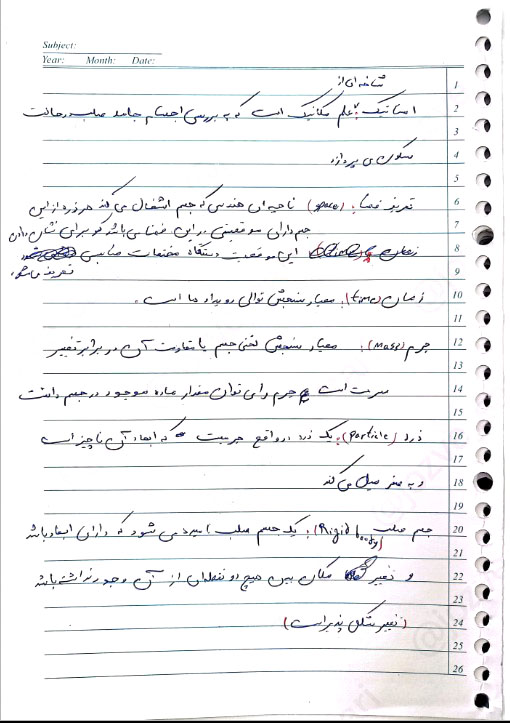 Subject:
Year: Month: Date:
شاخه ای از
استاتیک: علم مکانیک است که به بررسی اجسام جامد صلب در حالت
سکون می پردازد
تعریف فضا: (space) ناحیه ای هندسی که جسم اشغال می کند هر ذره از این
جسم دارای موقعیتی در این فضا می باشد که برای نشان دادن
این موقعیت دستگاه مختصات مناسبی
تعریف می شود
زمان (time): معیار سنجش توالی رویدادها است.
جرم (mass): معیار سنجش لختی جسم یا مقاومت آن در برابر تغییر
سرعت است جرم را می توان مقدار ماده موجود در جسم دانست
ذره (particle): یک ذره در واقع جرمیست که ابعاد آن ناچیز است
و به صفر میل می کند
جسم صلب (Rigid body): یک جسم صلب نامیده می شود که دارای ابعاد باشد
و تغییر مکان بین هیچ دو نقطه ای از آن وجود نداشته باشد
(تغییر شکل پذیر است)
1
2
3
4
5
6
7
8
9
10
11
12
13
14
15
16
17
18
19
20
21
22
23
24
25
26